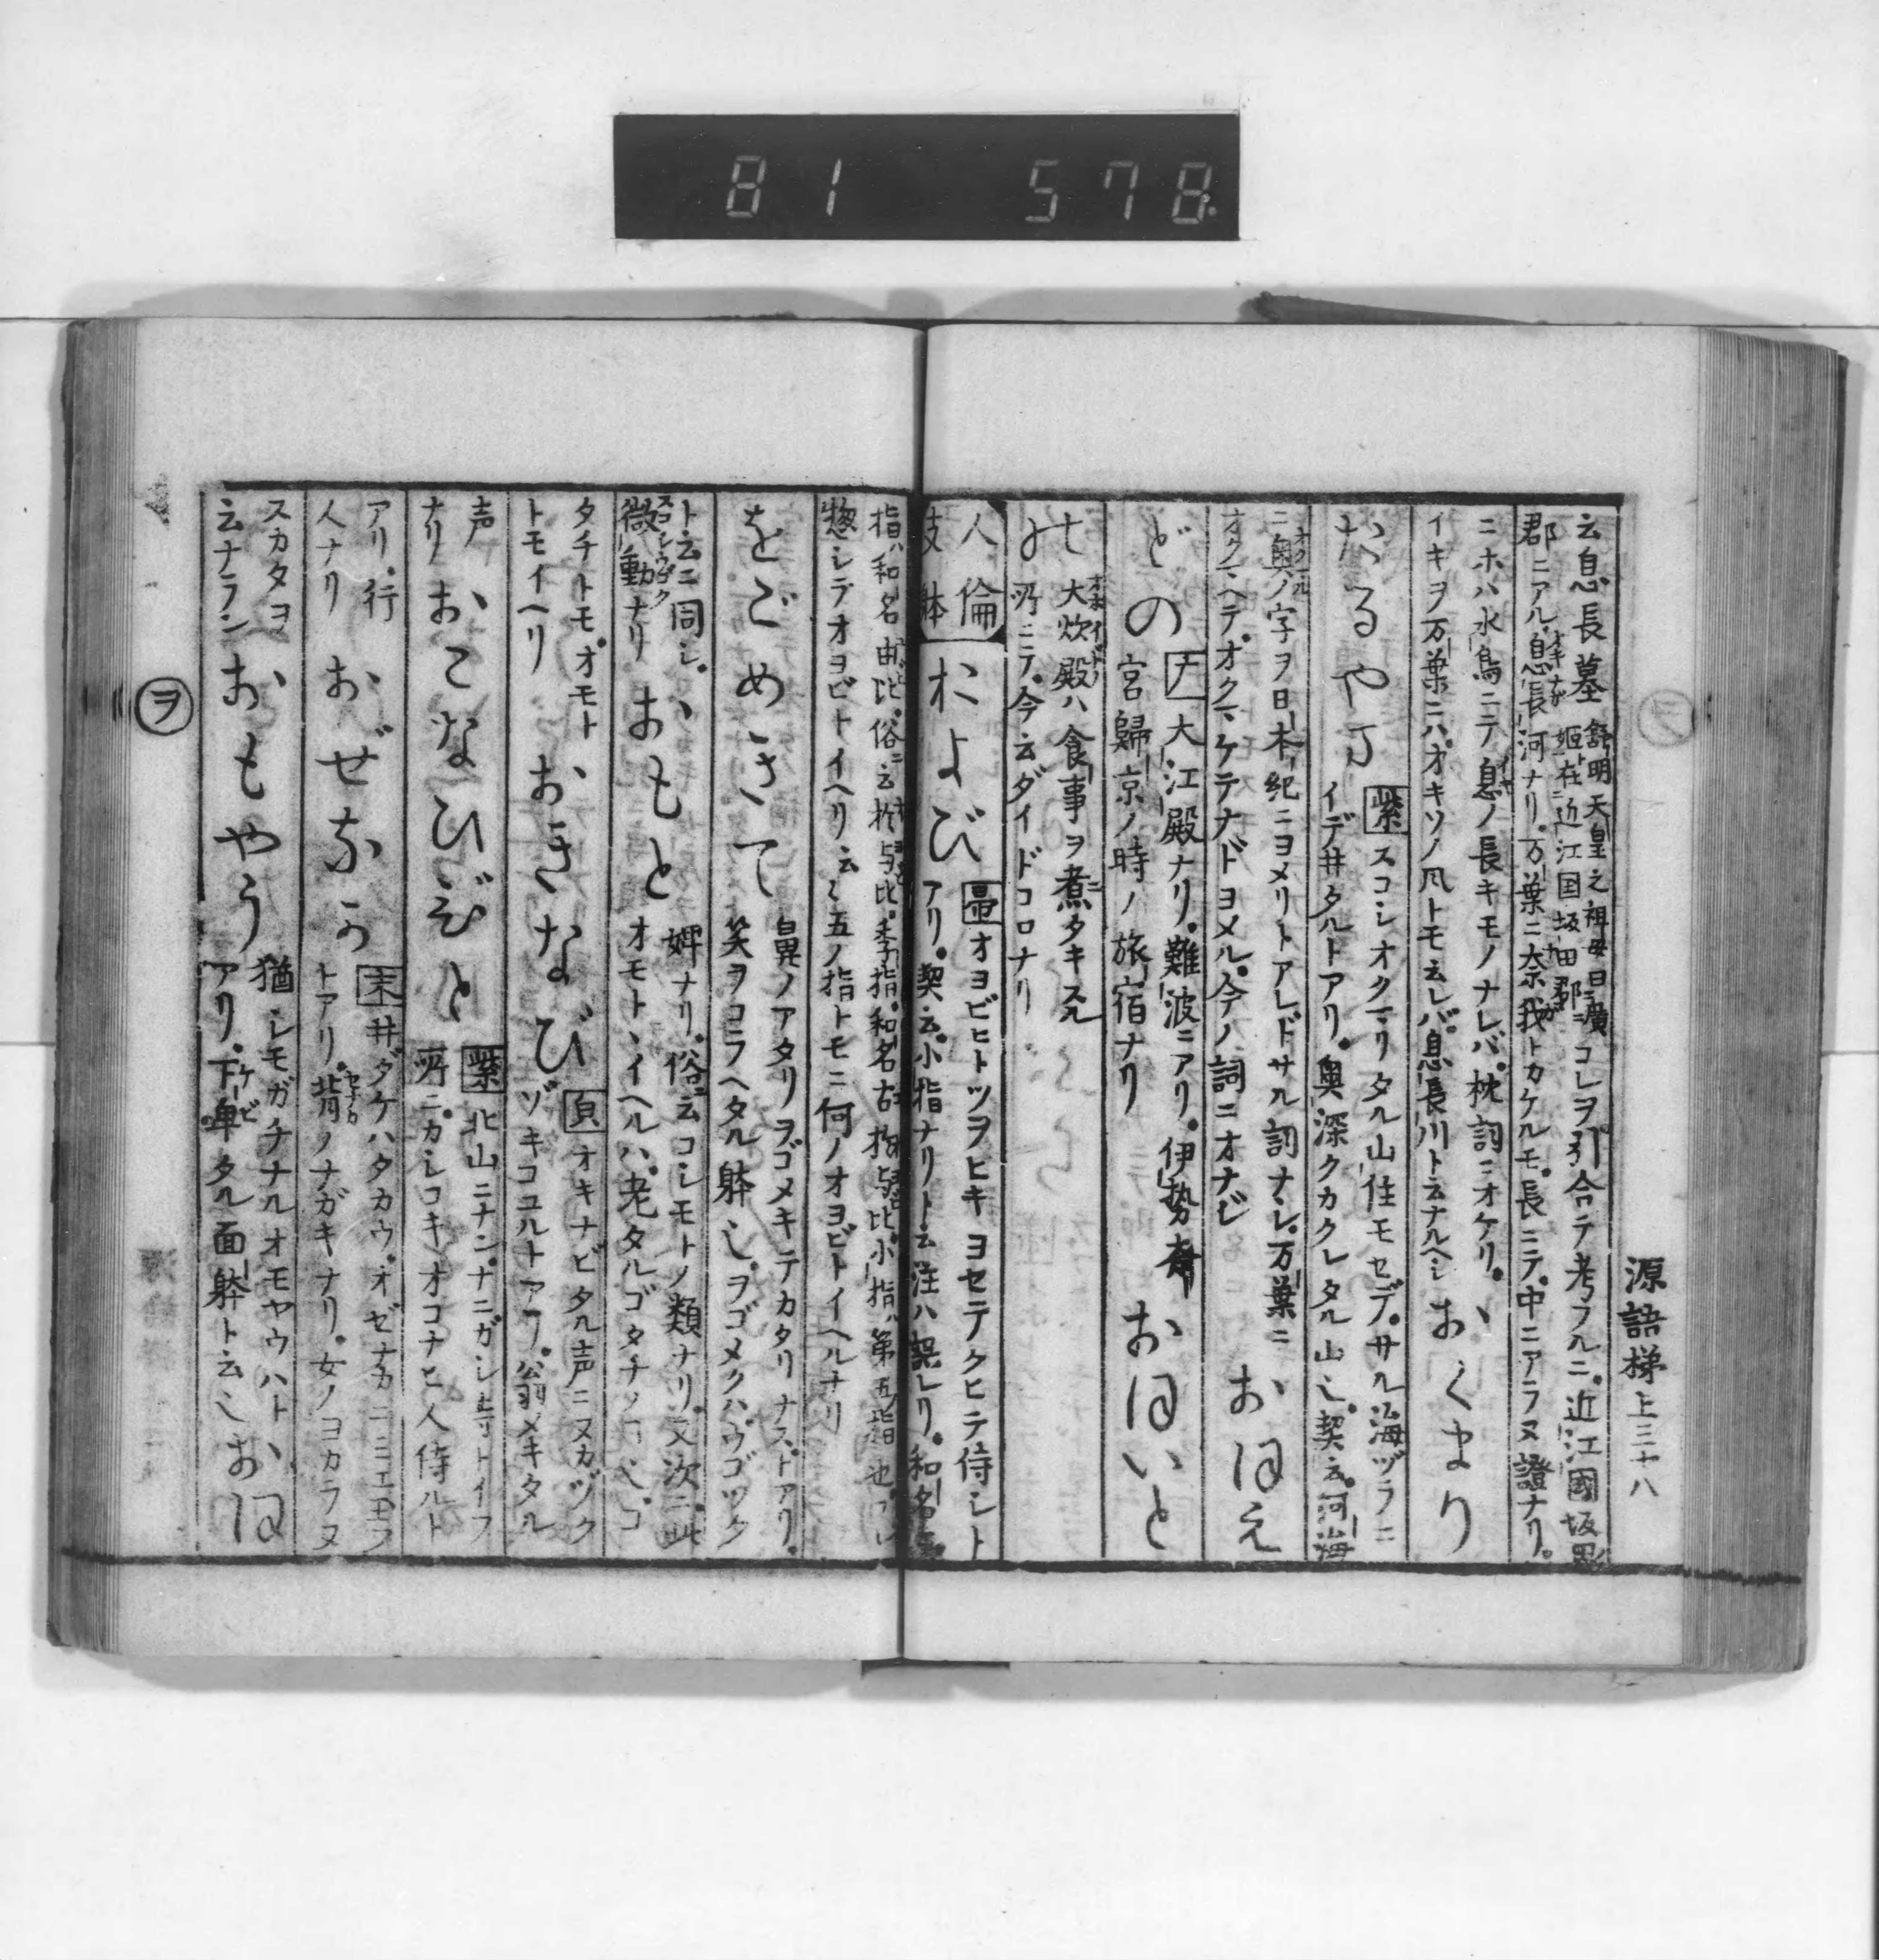 81 578
源語梯上三十八
云息長墓 舒明天皇之祖母曰廣姫在近江国坂田郡 コレヲ引合テ考フルニ近江國坂田
郡ニアル息長河ナリ万葉ニ奈我トカケルモ長ニテ中ニアラヌ證ナリ
ニホハ水鳥ニテ息ノ長キモノナレバ枕詞ニオケリ
イキヲ万葉ニハオキソノ風トモ云レバ息長川ト云ナルヘシ
おくまり
たるやま
紫 スコシオクマリタル山住モセデサル海ヅラニ
イデ井タルトアリ奥深クカクレタル山也契云河海
ニ奥ノ字ヲ日本紀ニヨメリトアレドサル詞ナシ万葉ニ
オクマヘテオクマケテナドヨメル今ノ詞ニオナじ
おほえ
どの
大江殿ナリ難波ニアリ伊勢斎
宮歸京ノ時ノ旅宿ナリ
おほいと
の 大炊殿ハ食事ヲ煮タキスル
所ニテ今云ダイドコロナリ
人倫
肢体
および
帚 オヨビヒトツヲヒキヨセテクヒテ侍シト
アリ契云小指ナリト云注ハ誤レリ和名
指ハ和名由比俗ニ云於与比季指和名古於与比小指ハ第五指也
惣シテオヨビトイヘリ云々五ノ指トモニ何ノオヨビトイヘルナリ
をごめきて
鼻ノアタリヲゴメキテカタリナストアリ
笑ヲコラヘタル躰也ヲゴメクハウゴツク
ト云ニ同シ
微動ナリ
おもと
婢ナリ俗ニ云コシモトノ類ナリ又次ニ此
オモトヽイヘルハ老タルゴタチノ
タチトモオモト
トモイヘリ
おきなび
オキナビタル声ニヌカヅク
ゾキコユルトアリ翁メキタル
声
ナリ
おこなひびと
紫 北山ニナンナニガシ寺トイフ
所ニカシコキオコナヒ人侍ルト
アリ行
人ナリ
おぜなか
末 井ダケハタカウオゼナカニミエ玉フ
トアリ背ノナガキナリ女ノヨカラヌ
スカタヲ
云ナラン
おもやう
猶シモガチナルオモヤウハト
アリ下卑タル面躰ト云也
おほ
ヲ